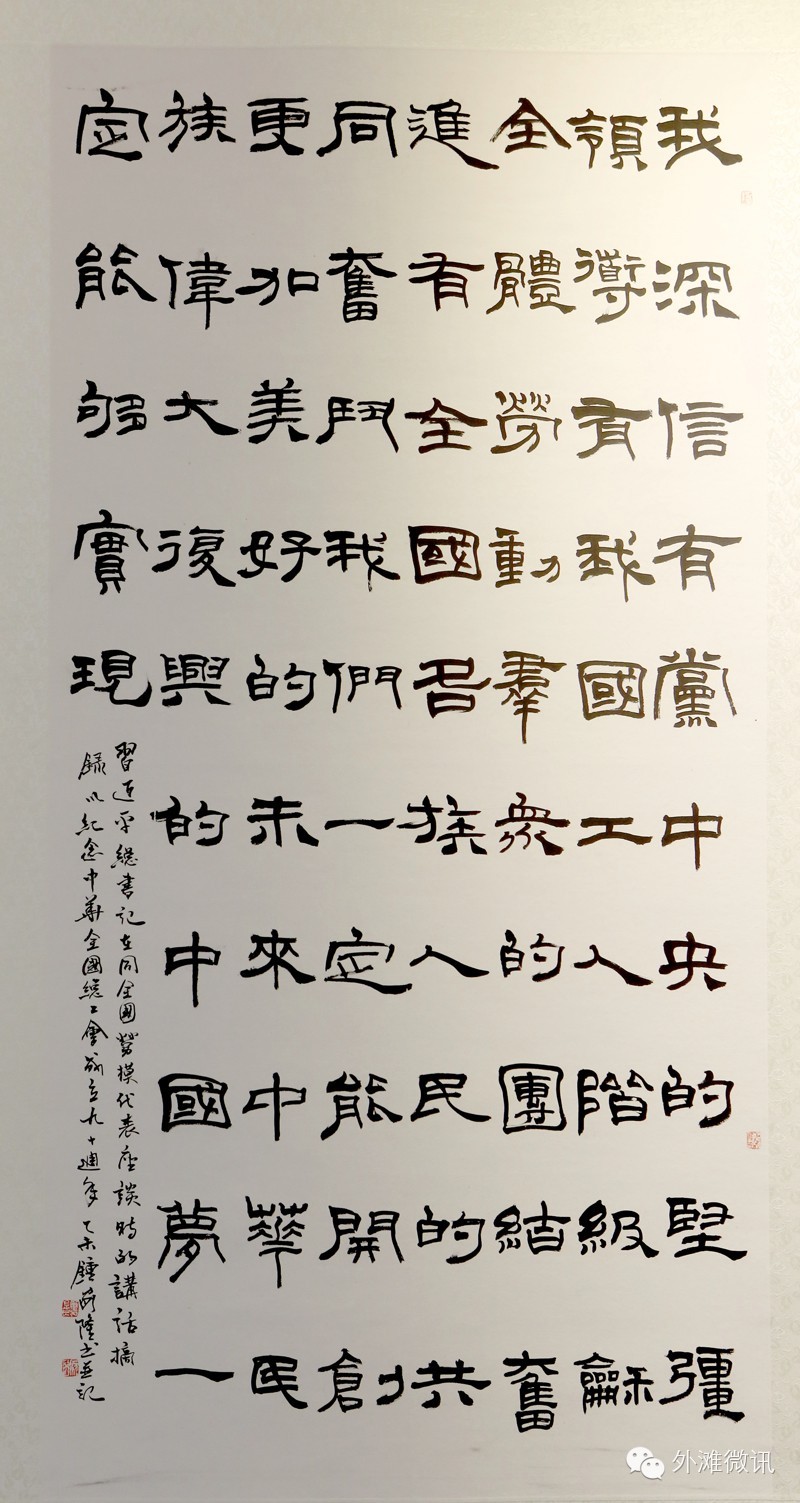 我深信有黨中央的堅彊
領導有我國工人階級龢
全體勞動羣衆的團結奮
進有全國各族人民的共
同奮鬥我們一定能開創
更加美好的未來中華民
族偉大復興的中國夢一
定能够實現
習近平總書記在同全國勞模代表座談時的講話摘
録以紀念中華全國總工會成立九十週年乙未鍾 隆書並記
外滩微讯